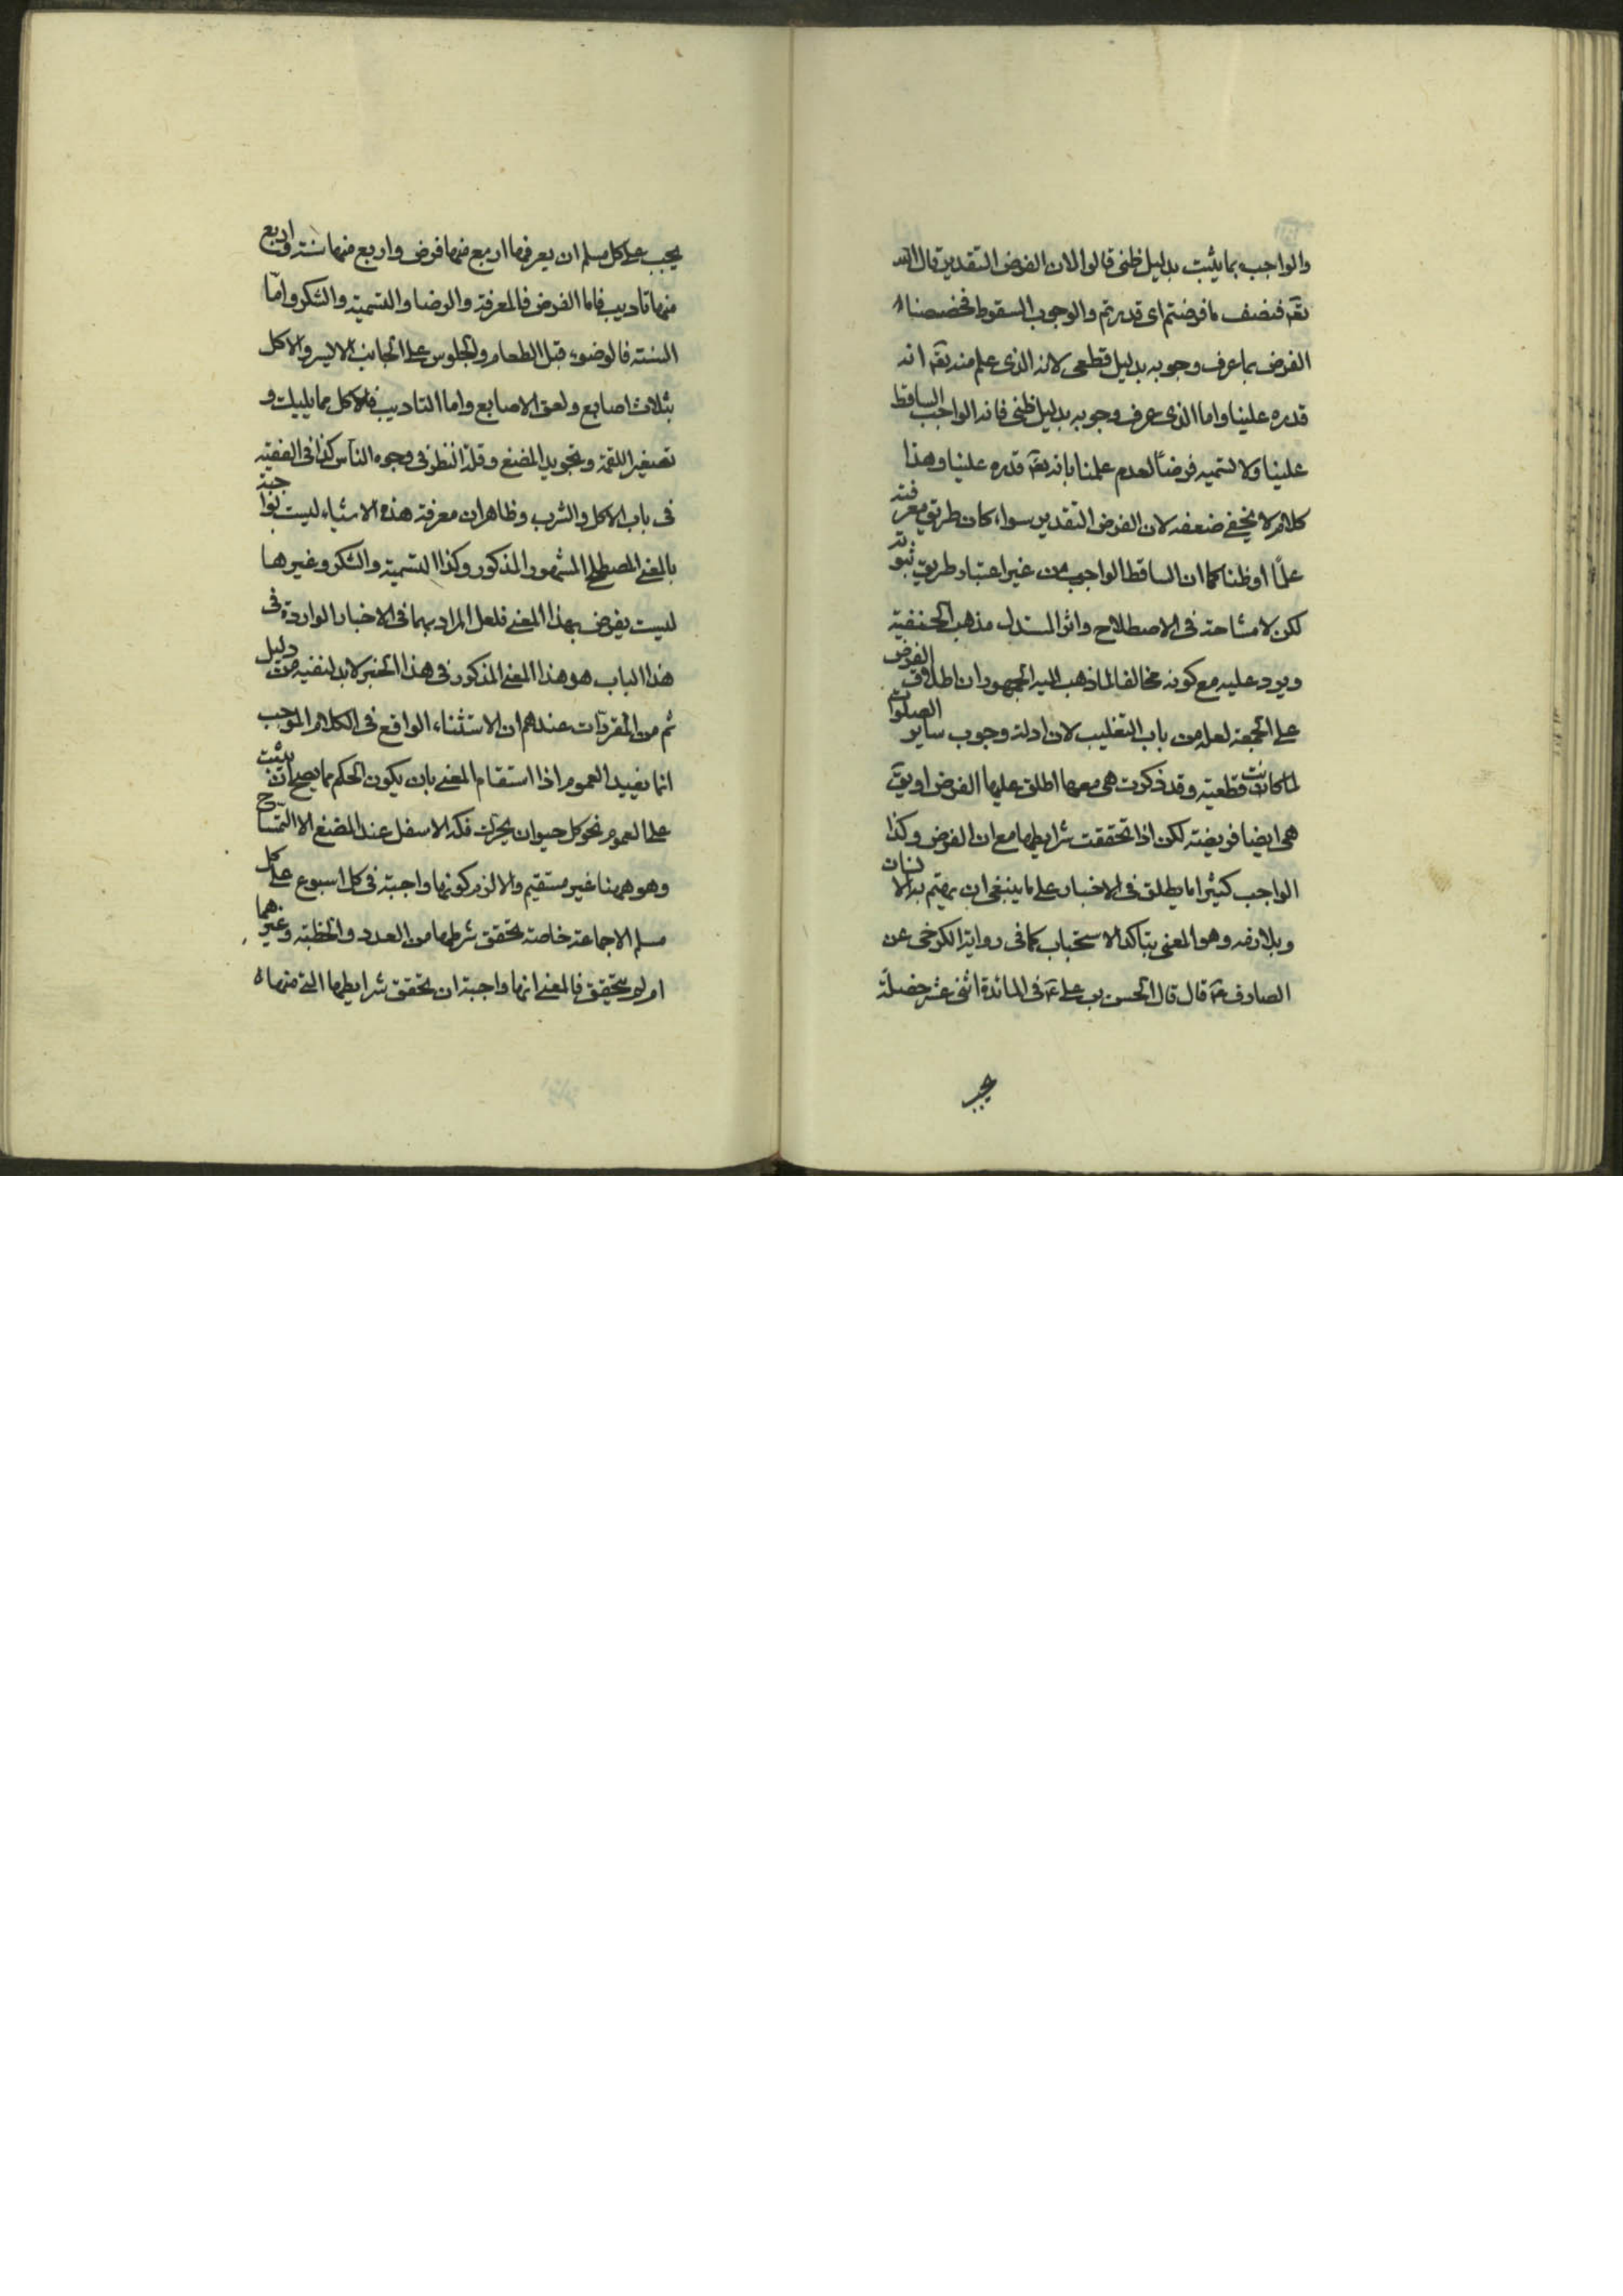 والواجب بما يثبت بدليل ظنى قالوا لان الفرض التقدير قال الله
تعه فنصف ما فرضتم اى قدرتم والوجوب السقوط فخصصناه
الفرض بما عرف وجوبه بدليل قطعى لانه الذى علم منه تعه انه
قدره علينا واما الذى عرف وجوبه بدليل ظنى فانه الواجب الساقط
علينا ولا نسميه فرضاً لعدم علمنا بانه تعه قدره علينا وهذا
كلام لا يخفى ضعفه لان الفرض التقدير سواء كان طريق معرفته
علمًا او ظنا كما ان الساقط الواجب من غير اعتبار طريق ثبوته
لكن لا مشاحة فى الاصطلاح واثر المستدل مذهب الحنفية
ويرد عليه مع كونه مخالفا لما ذهب اليه الجمهور ان اطلاق الفرض
على الجمعة لعله من باب التغليب لان ادلة وجوب ساير الصلوات
لما كانت قطعية وقد ذكرت هى معها اطلق عليها الفرض او يق
هى ايضا فريضة لكن اذا تحققت شرايطها مع ان الفرض وكذا
الواجب كثيرا ما يطلق فى الاخبار على ما ينبغى ان يهتم به الانسان
ولا رفه وهو المعنى بتاكد الاستحباب كما فى رواية الكرخى عن
الصادق ع قال قال الحسن بن على ع فى المائدة اثنى عشر خصلة
يجب
يجب على كل مسلم ان يعرفها اربع منها فرض واربع منها سنة واربع
منها تاديب فاما الفرض فالمعرفة والرضا والتسمية والشكر وامّا
السنة فالوضوء قبل الطعام والجلوس على الجانب الايسر والاكل
بثلاث اصابع ولعق الاصابع واما التاديب فالاكل مما يليك و
تصغير اللقمة وتجويد المضغ وقلة النظر فى وجوه الناس كذا فى الفقيه
فى باب الاكل والشرب وظاهر ان معرفة هذه الاشياء ليست بواجبة
بالمعنى المصطلح المشهور المذكور وكذا التسمية والشكر وغيرها
ليست بفرض بهذا المعنى فلعل المراد بهما فى الاخبار الواردة فى
هذا الباب هو هذا المعنى المذكور فى هذا الخبر لابد لنفيه من دليل
ثم من المقررات عندهم ان الاستثناء الواقع فى الكلام الموجب
انما يفيد العموم اذا استقام المعنى بان يكون الحكم مما يصح ان يثبت
على العموم نحو كل حيوان يحرك فكه الاسفل عند المضغ الا التمساح
وهو ههنا غير مستقيم والا لزم كونها واجبة فى كل اسبوع على كل
مسلم الا جماعة خاصة تحقق شرطها من العدد والخطبة وغيرهما
ام لم يتحقق فالمعنى انها واجبة ان تحقق شرايطها التى منها ا